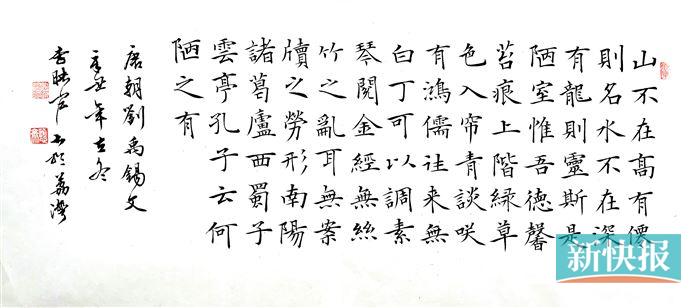 山不在髙有僊
則名水不在深
有龍則靈斯是
陋室惟吾德馨
苔痕上階綠草
色入帘青談咲
有鴻儒往来無
白丁可以調素
琴閱金經無絲
竹之亂耳無案
牘之勞形南陽
諸葛廬西蜀子
雲亭孔子云何
陋之有
唐朝劉禹錫文
辛丑年立冬
书於荔灣
新快报